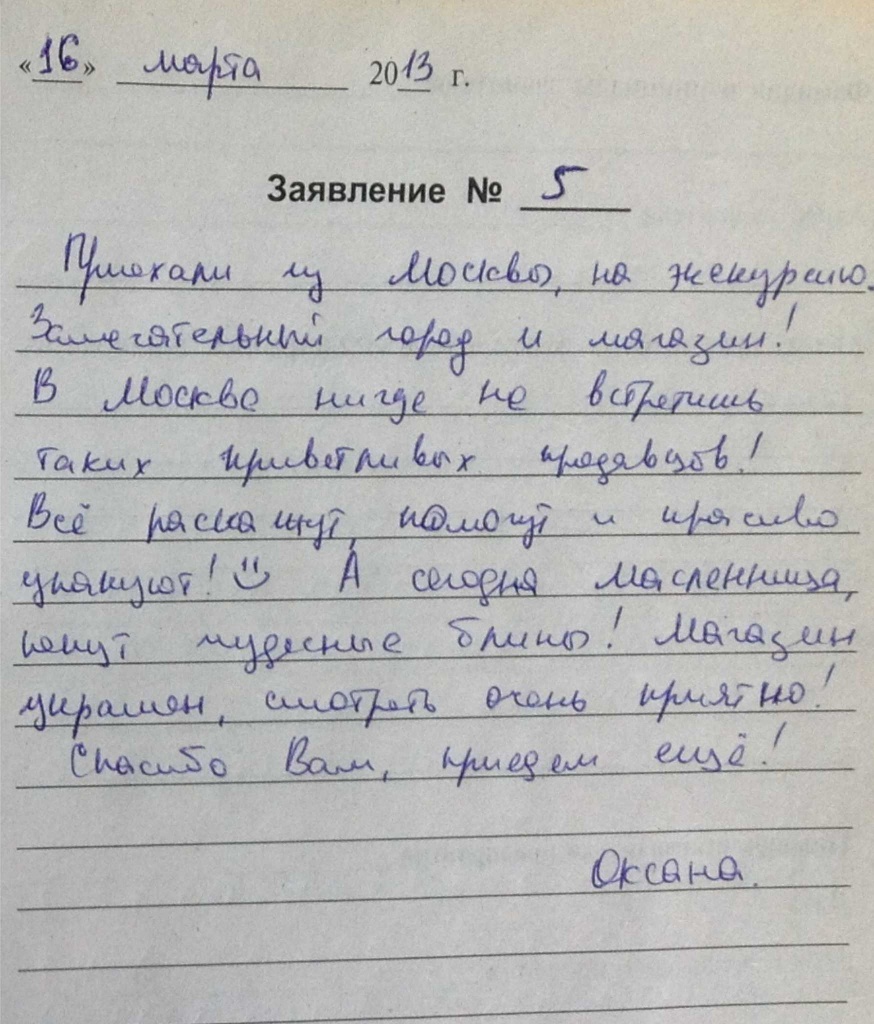 «16» марта 2013 г.
Заявление № 5
Приехали из Москвы, на экскурсию.
Замечательный город и магазин!
В Москве нигде не встретишь
таких приветливых продавцов!
Всё раскажут, помогут и красиво
упакуют! :) А сегодня Масленница,
пекут чудесные блины! Магазин
украшен, смотреть очень приятно!
Спасибо Вам, приедем ещё!
Оксана.